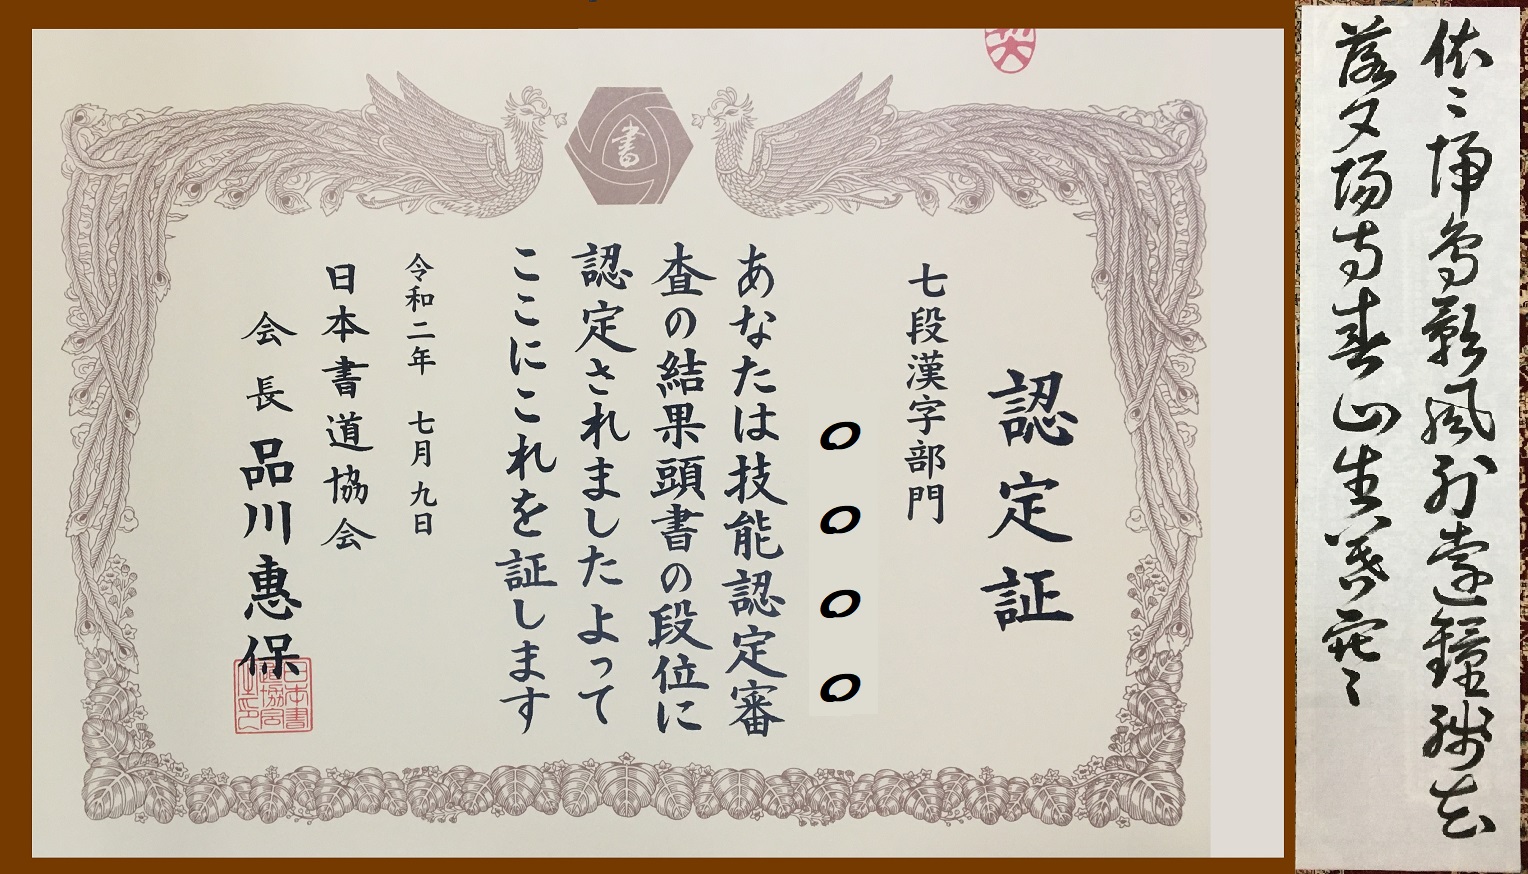 書
認定証
七段漢字部門
〇〇〇〇
あなたは技能認定審
査の結果頭書の段位に
認定されましたよって
ここにこれを証します
令和二年 七月 九日
日本書道協会
会長 品川惠保
日本書道協会之印
依々帰鳥影風外遠鐘残花
落夕陽寺春山生暮寒